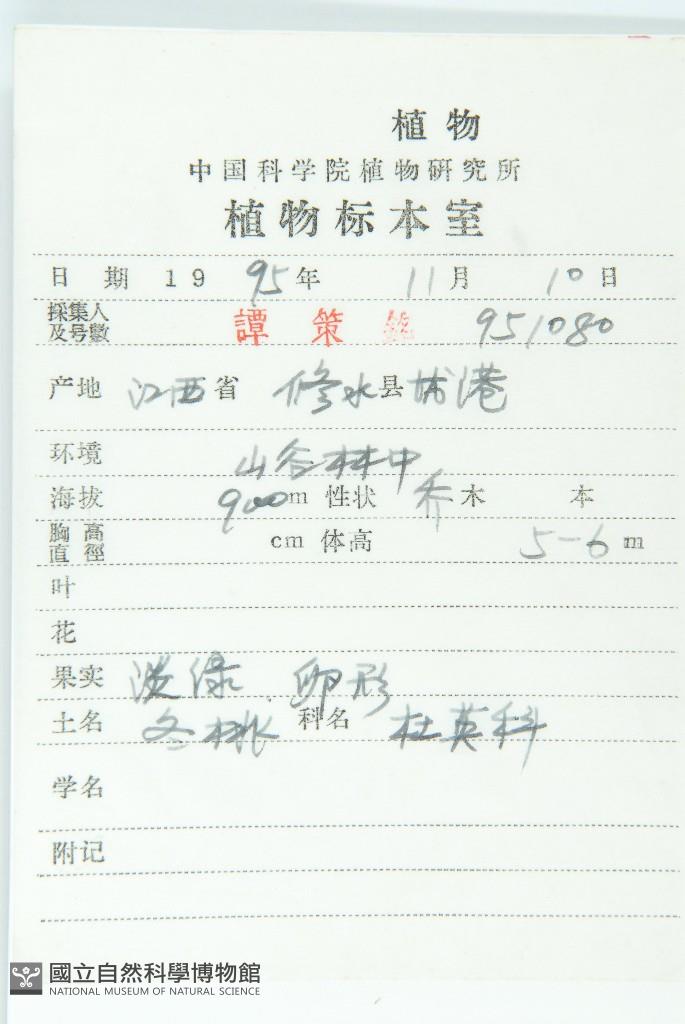 植物
中国科学院植物研究所
植物标本室
日 期 19 95 年 11 月 10 日
採集人及号數 譚 策 銘 951080
产地 江西 省 修水 县 港
环境 山谷林中
海拔 900 m 性状 乔 木 本
胸高直徑 cm 体高 5-6 m
叶
花
果实 淡绿. 卵形
土名 冬桃 科名 杜英科
学名
附记
國立自然科學博物館
NATIONAL MUSEUM OF NATURAL SCIENCE